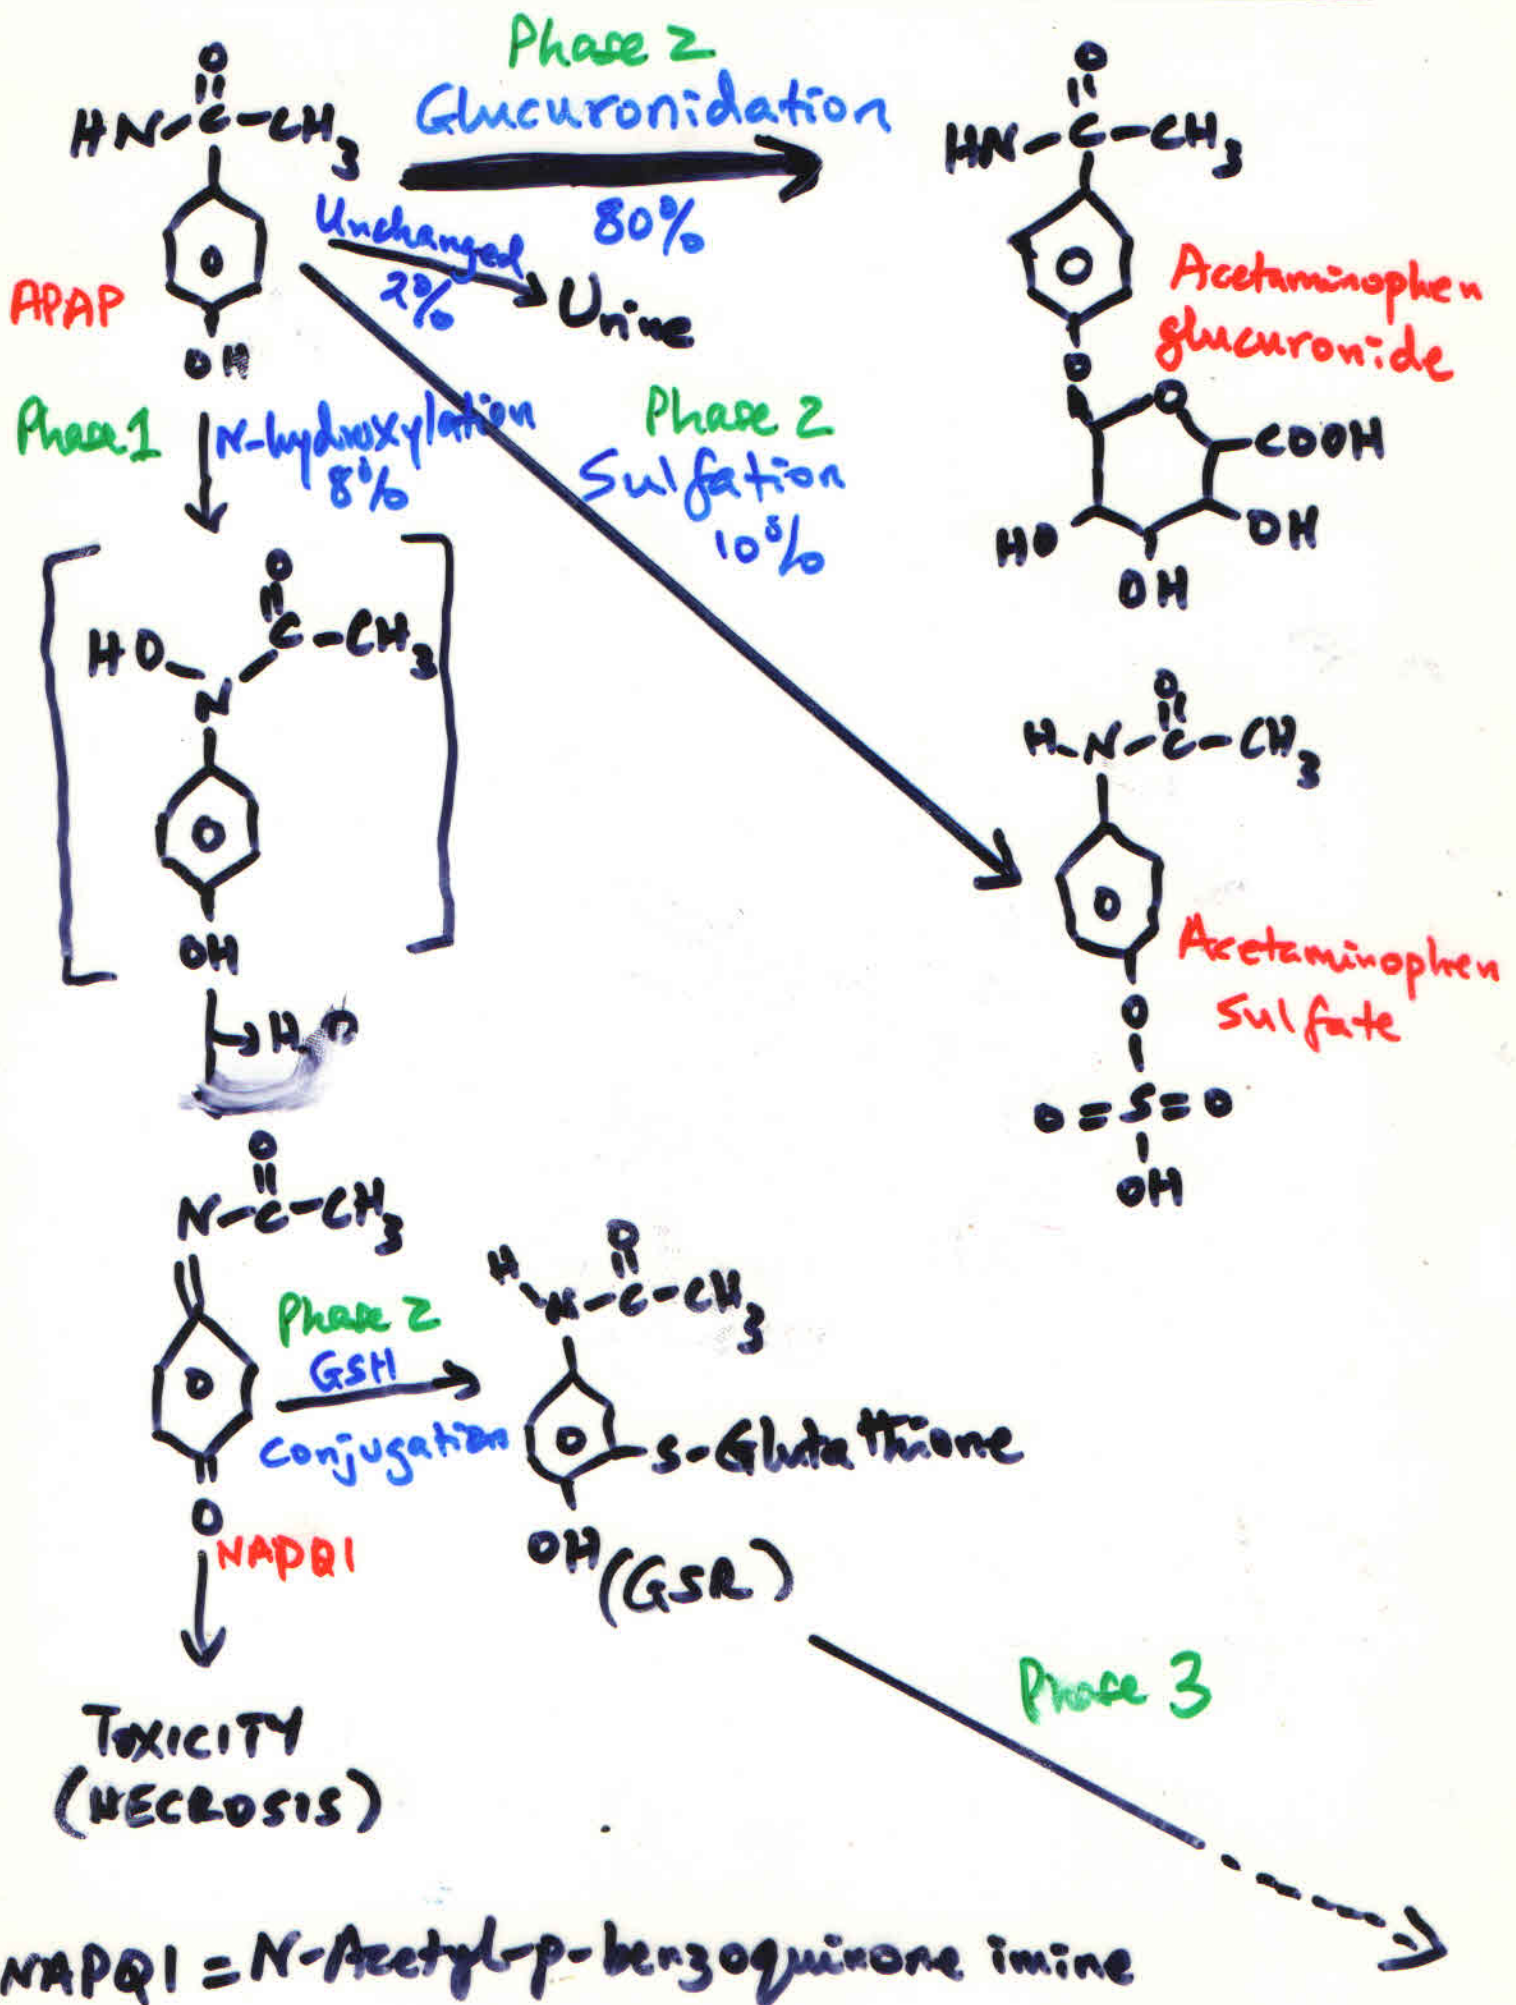 Phase 2
Glucuronidation
80%
O
HN-C-CH3
APAP
OH
Unchanged
2%
Urine
O
HN-C-CH3
Acetaminophen
glucuronide
O
O
COOH
HO
OH
OH
Phase 1
N-hydroxylation
8%
Phase 2
Sulfation
10%
O
HO
C-CH3
N
OH
O
H-N-C-CH3
Acetaminophen
Sulfate
O
O=S=O
OH
O
N-C-CH3
Phase 2
GSH
Conjugation
O
NAPQI
O
H
N-C-CH3
S-Glutathione
OH
(GSR)
Phase 3
TOXICITY
(NECROSIS)
NAPQI = N-Acetyl-p-benzoquinone imine